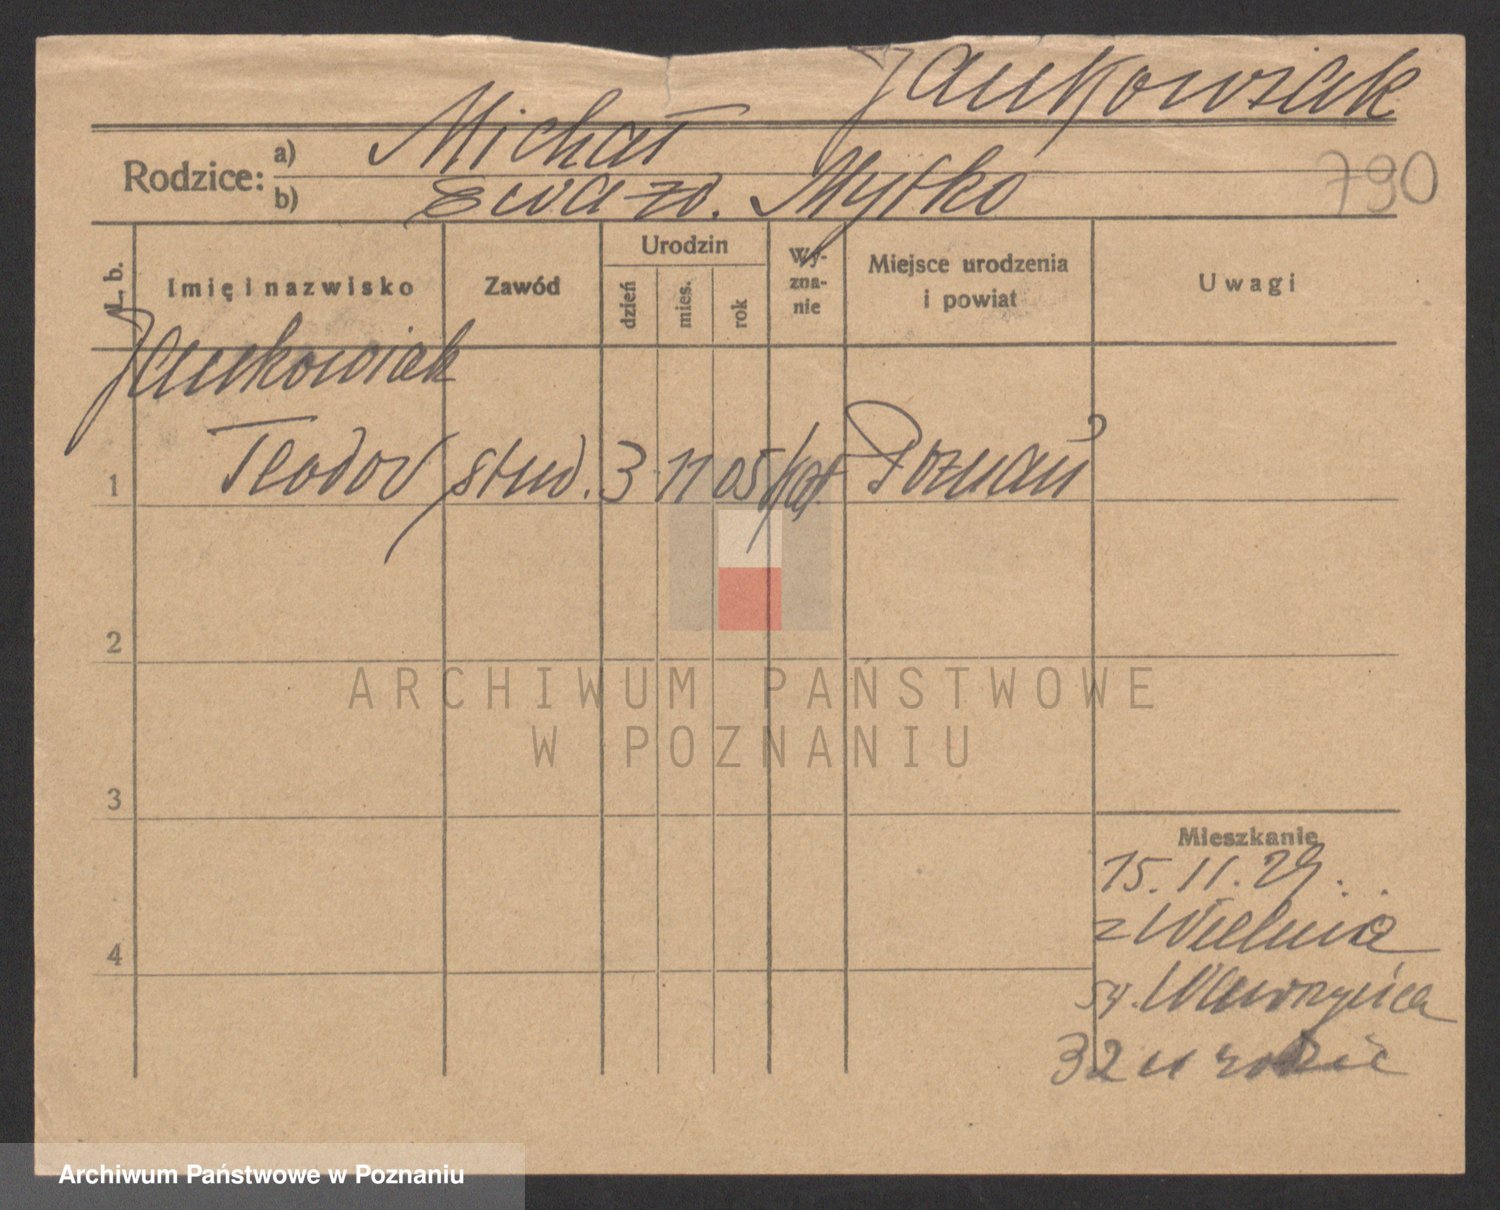 Jankowiak
Rodzice: a) Michał
b) Ewa zd. Mytko
790
L. b.
Imię i nazwisko
Zawód
Urodzin
dzień
mies.
rok
Wy-
zna-
nie
Miejsce urodzenia
i powiat
Uwagi
Jankowiak
1 Teodor stud. 3 11 05 kat. Poznań
2
3
4
Mieszkanie
15.11.29.
z Wilna
św. Wawrzyńca
32 u rodzic
ARCHIWUM PAŃSTWOWE
W POZNANIU
Archiwum Państwowe w Poznaniu